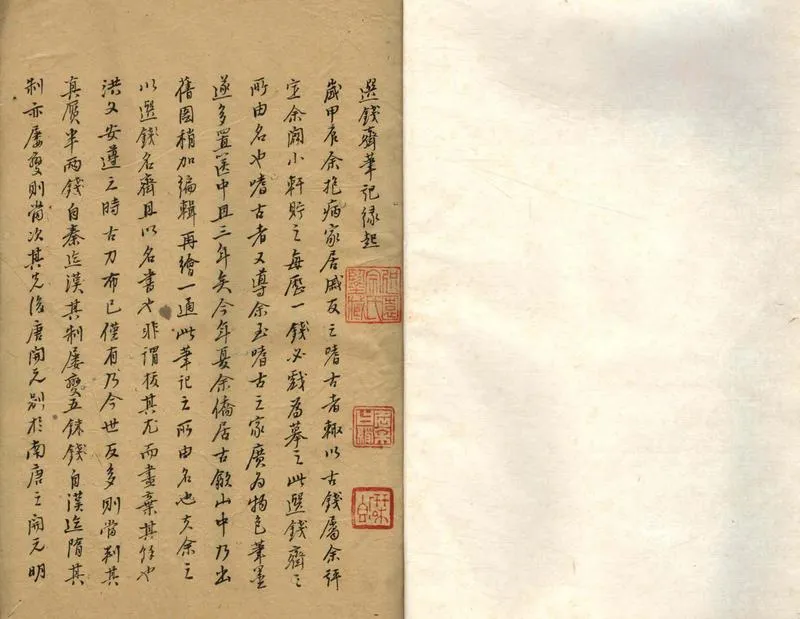 選錢齋筆記緣起
歲甲辰余抱病家居戚友之嗜古者輒以古錢屬余評
定余闢小軒貯之每歷一錢必戲為摹之此選錢齋之
所由名也嗜古者又導余至嗜古之家廣為物色筆墨
遂多置篋中且三年矣今年夏余僑居古歙山中乃出
舊圖稍加編輯再繪一通此筆記之所由名也夫余之
以選錢名齋且以名書也非謂拔其尤而盡棄其餘也
洪文安遵之時古刀布已僅有乃今世反多則當判其
真贋半兩錢自秦迄漢其制屢變五銖錢自漢迄隋其
制亦屢變則當次其先後唐開元別於南唐之開元明